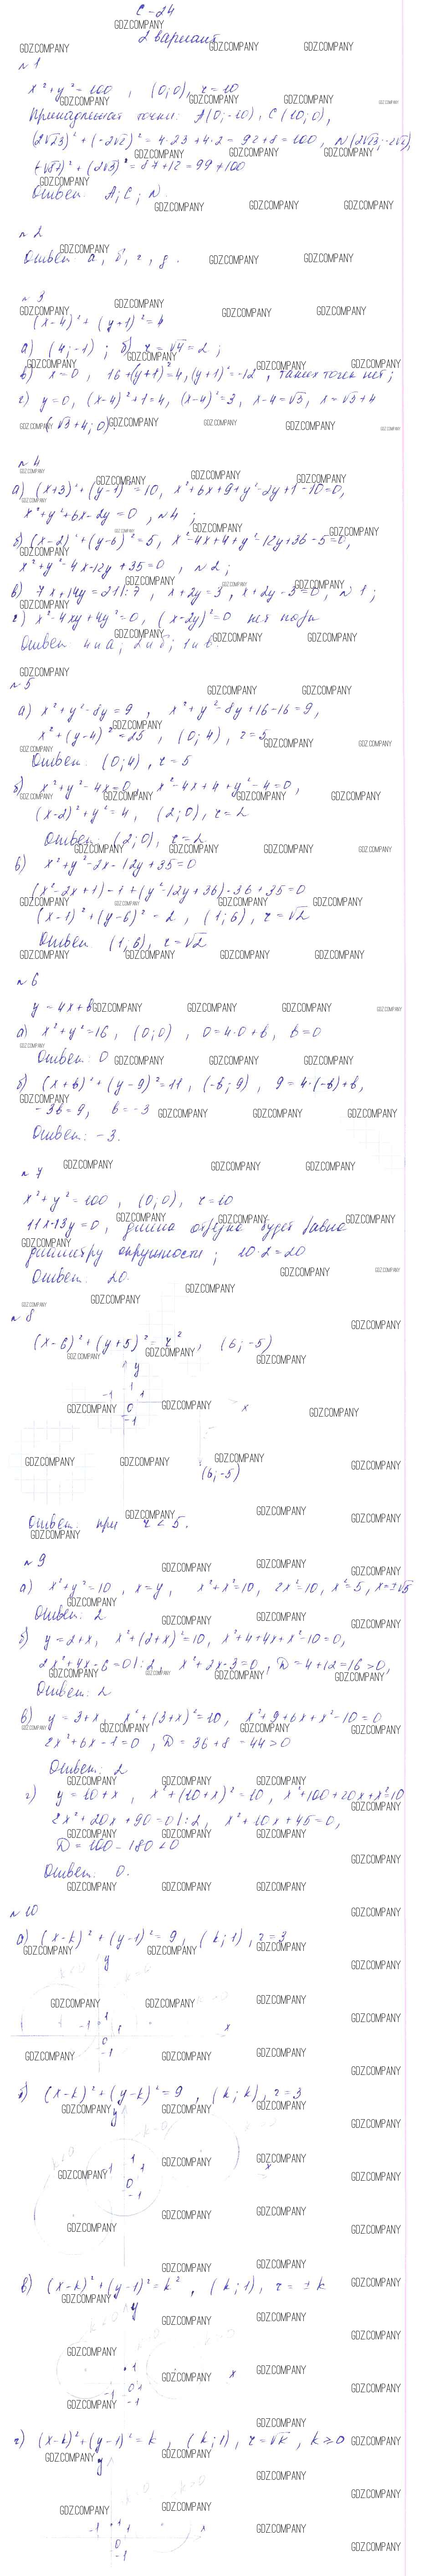 С-24
2 вариант
№1
x²+y²=100, (0;0), r=10
Принадлежат точки: A(0;-10), C(10;0),
(2√23)²+(-2√2)²=4·23+4·2=92+8=100, N(2√23;-2√2),
(-√87)²+(2√3)²=87+12=99≠100
Ответ: A; C; N.
№2
Ответ: а, б, г, д.
№3
(x-4)²+(y+1)²=4
а) (4;-1); б) r=√4=2;
в) x=0, 16+(y+1)²=4, (y+1)²=-12, таких точек нет;
г) y=0, (x-4)²+1=4, (x-4)²=3, x-4=√3, x=√3+4
(√3+4;0).
№4
а) (x+3)²+(y-1)²=10, x²+6x+9+y²-2y+1-10=0,
x²+y²+6x-2y=0, №4;
б) (x-2)²+(y-6)²=5, x²-4x+4+y²-12y+36-5=0,
x²+y²-4x-12y+35=0, №2;
в) 7x+14y=21|:7, x+2y=3, x+2y-3=0, №1;
г) x²-4xy+4y²=0, (x-2y)²=0 нет пары
Ответ: 4 и а; 2 и б; 1 и в.
№5
а) x²+y²-8y=9, x²+y²-8y+16-16=9,
x²+(y-4)²=25, (0;4), r=5
Ответ: (0;4), r=5
б) x²+y²-4x=0, x²-4x+4+y²-4=0,
(x-2)²+y²=4, (2;0), r=2
Ответ: (2;0), r=2
в) x²+y²-2x-12y+35=0
(x²-2x+1)-1+(y²-12y+36)-36+35=0
(x-1)²+(y-6)²=2, (1;6), r=√2
Ответ: (1;6), r=√2
№6
y=4x+b
а) x²+y²=16, (0;0), 0=4·0+b, b=0
Ответ: 0
б) (x+b)²+(y-9)²=11, (-b;9), 9=4·(-b)+b,
-3b=9, b=-3
Ответ: -3.
№7
x²+y²=100, (0;0), r=10
11x-13y=0, длина отрезка будет равна
диаметру окружности; 10·2=20
Ответ: 20.
№8
(x-6)²+(y+5)²=r², (6;-5)
y
1
-1 1
0 x
-1
(6;-5)
Ответ: при r<5.
№9
а) x²+y²=10, x=y, x²+x²=10, 2x²=10, x²=5, x=±√5
Ответ: 2
б) y=2+x, x²+(2+x)²=10, x²+4+4x+x²-10=0,
2x²+4x-6=0|:2, x²+2x-3=0, D=4+12=16>0,
Ответ: 2
в) y=3+x, x²+(3+x)²=10, x²+9+6x+x²-10=0
2x²+6x-1=0, D=36+8=44>0
Ответ: 2
г) y=10+x, x²+(10+x)²=10, x²+100+20x+x²=10
2x²+20x+90=0|:2, x²+10x+45=0,
D=100-180<0
Ответ: 0.
№10
а) (x-k)²+(y-1)²=9, (k;1), r=3
y
-1 1 x
0
-1
б) (x-k)²+(y-k)²=9, (k;k), r=3
y
1
-1 1 x
0
-1
в) (x-k)²+(y-1)²=k², (k;1), r=±k
y
1
-1 0 1 x
-1
г) (x-k)²+(y-1)²=k, (k;1), r=√k, k≥0
y
-1 1 1 x
0
-1
GDZ.COMPANY